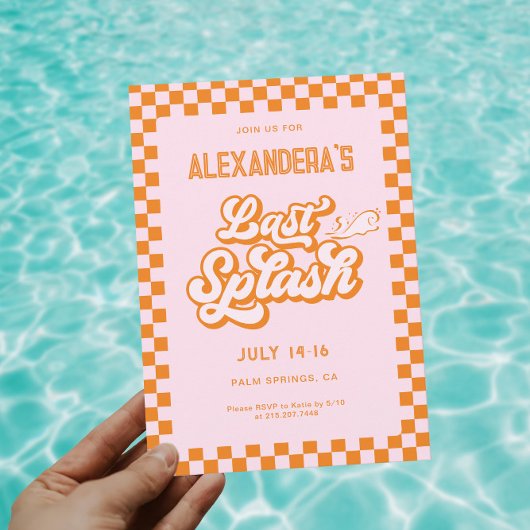 JOIN US FOR
ALEXANDERA'S
Last
Splash
JULY 14-16
PALM SPRINGS, CA
Please RSVP to Katie by 5/10
at 215.207.7448